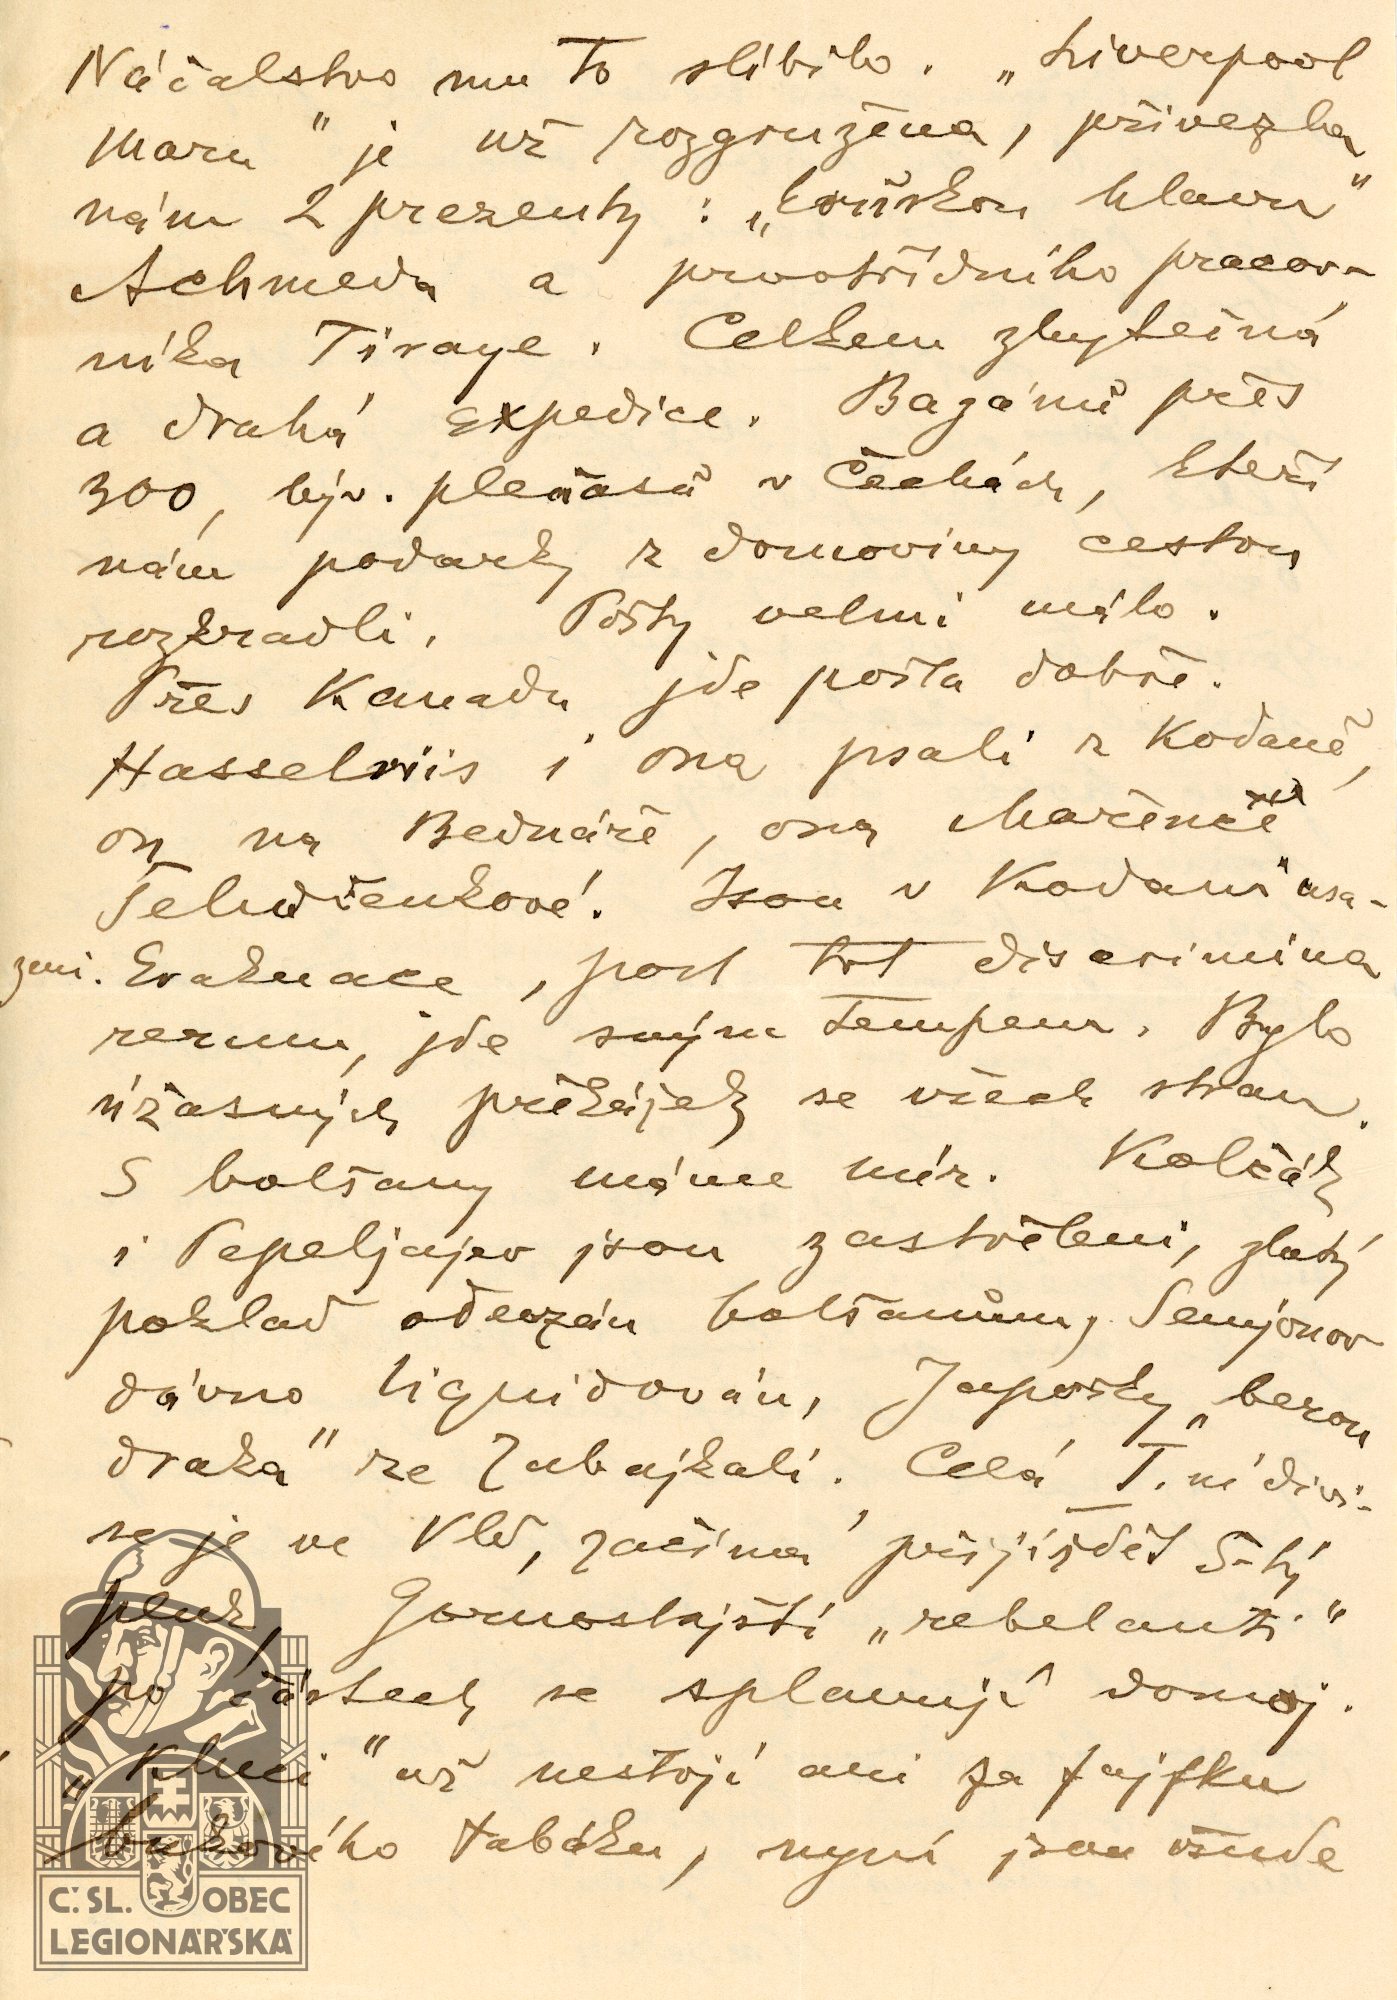 Náčalstvo mu to slíbilo. „Liverpool
Maru" je už rozgružena, přivezla
nám 2 prezenty: „koňskou hlavu"
Achmeda a prvotřídního pracov-
níka Tiraye. Celkem zbytečná
a drahá expedice. Bagánů přes
300, býv. pleňasů v Čechách, kteří
nám podarky z domoviny cestou
rozkradli. Pošty velmi málo.
Přes Kanadu jde pošta dobře.
Hasselriis i ona psali z Kodaně,
on na Bednáře, ona Mařence
Teludčenkové. Jsou v Kodani usa-
zeni. Evakuace, post tot discrimina
rerum, jde svým tempem. Bylo
úžasných překážek se všech stran.
S bolšany máme mír. Kolčák
i Pepeljajev jsou zastřeleni, zlatý
poklad odevzdán bolšanům, Semjonov
dávno liquidován, Japošky „berou
draka" ze Zabajkalí. Celá I. ní divi-
se je ve Vld, začíná přijíždět 5-tý
pluk, Gornostajští „rebelanti"
po částech se splavují domoj.
„Kluci" už nestojí ani za fajfku
bukového tabáku, nyní jsou všude
Č. SL. OBEC
LEGIONÁŘSKÁ